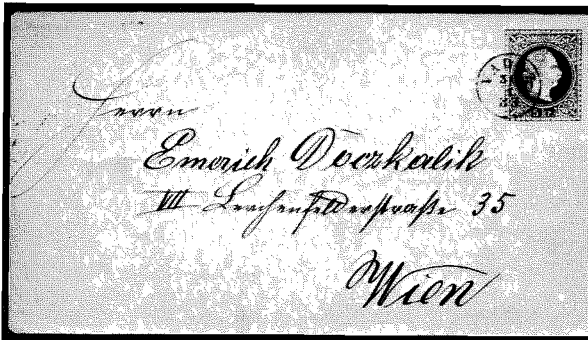 Herrn
Emerich Doczkalik
VII Lerchenfelderstraße 35
Wien